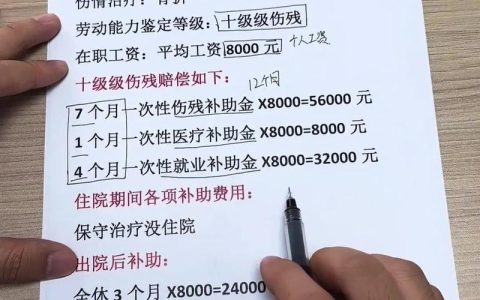 伤情治疗：骨折
劳动能力鉴定等级：十级级伤残
在职工资：平均工资8000 元 个人工资
十级级伤残赔偿如下： 12个月
7 个月一次性伤残补助金 X8000=56000 元
1 个月一次性医疗补助金 X8000=8000 元
4 个月一次性就业补助金 X8000=32000 元
住院期间各项补助费用：
保守治疗没住院
出院后补助：
全休 3 个月 X8000=24000